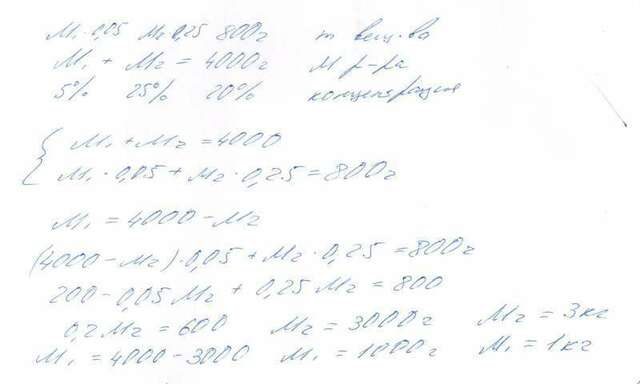 M₁·0,05 M₂·0,25 800г m вещ-ва
M₁ + M₂ = 4000г M р-ра
5% 25% 20% концентрация
{ M₁ + M₂ = 4000
M₁·0,05 + M₂·0,25 = 800г
M₁ = 4000 - M₂
(4000 - M₂)·0,05 + M₂·0,25 = 800г
200 - 0,05 M₂ + 0,25 M₂ = 800
0,2 M₂ = 600 M₂ = 3000г M₂ = 3кг
M₁ = 4000 - 3000 M₁ = 1000г M₁ = 1кг